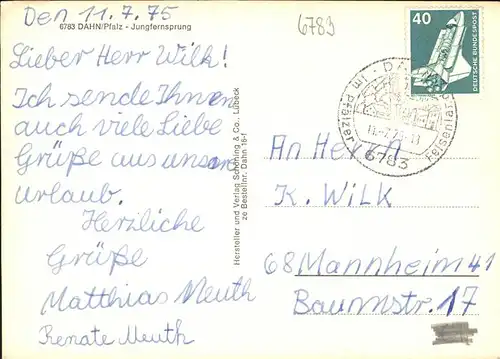 Den 11.7.75
6783 DAHN/Pfalz - Jungfernsprung
Lieber Herr Wilk!
Ich sende Ihnen
auch viele Liebe
Grüße aus unsern
urlaub.
Herzliche
Grüße
Matthias Meuth
Renate Meuth
Hersteller und Verlag Schöning & Co., Lübeck
ze Bestellnr. Dahn 16-f
6783
40
DEUTSCHE BUNDESPOST
Im Pfälzer
6783
An Herrn
K. Wilk
68 Mannheim 41
Baumstr. 17